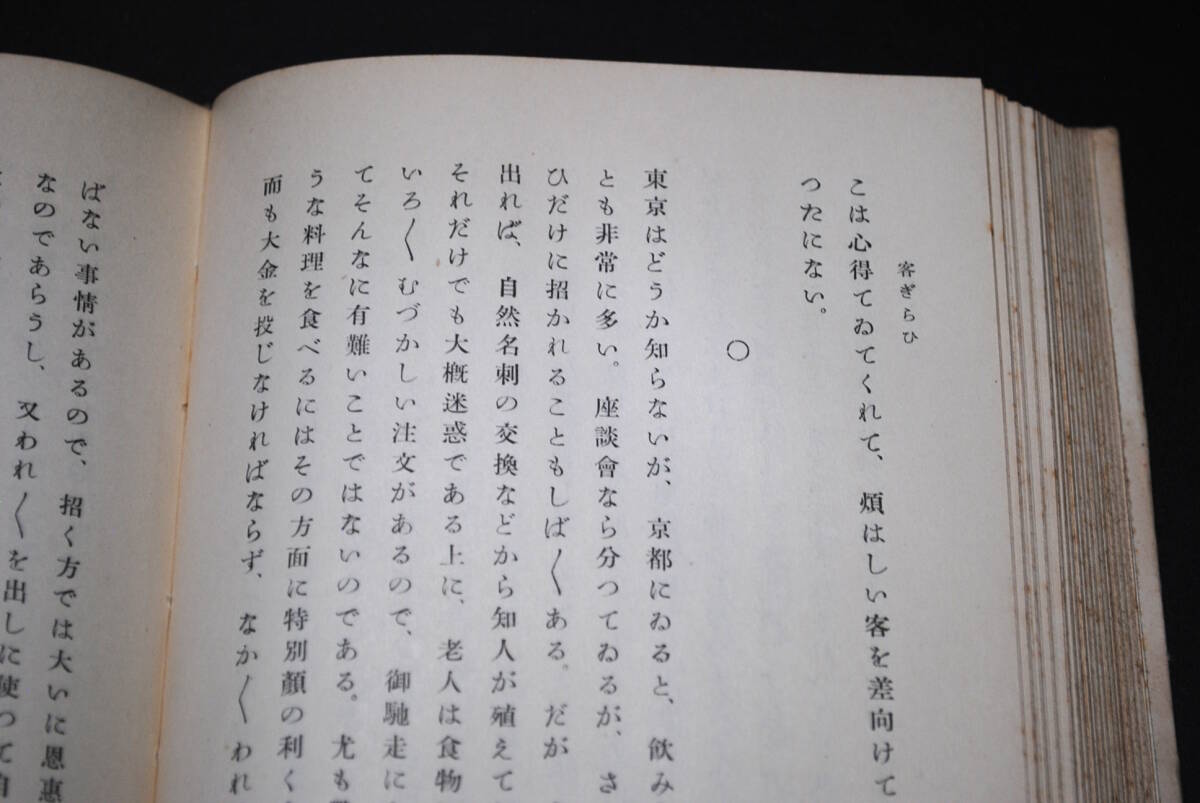 客ぎらひ
こは心得てゐてくれて、煩はしい客を差向けて
つたにない。
〇
東京はどうか知らないが、京都にゐると、飲み
とも非常に多い。座談會なら分つてゐるが、さ
ひだけに招かれることもしば〳〵ある。だが
出れば、自然名刺の交換などから知人が殖えて
それだけでも大概迷惑である上に、老人は食物
いろ〳〵むづかしい注文があるので、御馳走に
てそんなに有難いことではないのである。尤も
うな料理を食べるにはその方面に特別顔の利く
而も大金を投じなければならず、なか〳〵われ
ばない事情があるので、招く方では大いに恩惠
なのであらうし、又われ〳〵を出しに使つて自